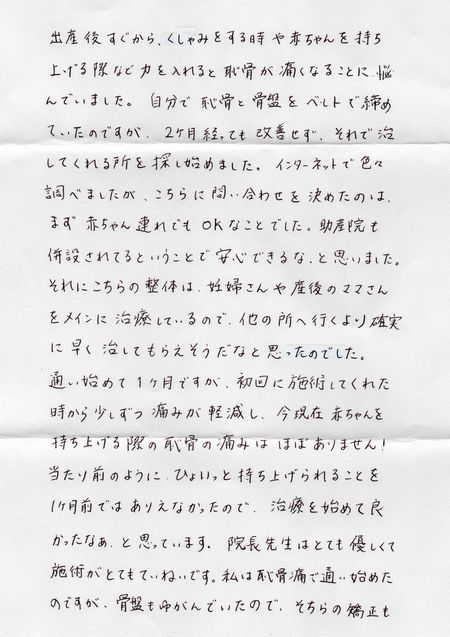 出産後すぐから、くしゃみをする時や赤ちゃんを持ち
上げる際など力を入れると恥骨が痛くなることに悩
んでいました。自分で恥骨と骨盤をベルトで締め
ていたのですが、2ヶ月経っても改善せず、それで治
してくれる所を探し始めました。インターネットで色々
調べましたが、こちらに問い合わせを決めたのは、
まず赤ちゃん連れでもOKなことでした。助産院も
併設されてるということで安心できるな、と思いました。
それにこちらの整体は、妊婦さんや産後のママさん
をメインに治療しているので、他の所へ行くより確実
に早く治してもらえそうだなと思ったのでした。
通い始めて1ヶ月ですが、初回に施術してくれた
時から少しずつ痛みが軽減し、今現在赤ちゃんを
持ち上げる際の恥骨の痛みはほぼありません!
当たり前のように、ひょいっと持ち上げられることを
1ヶ月前ではありえなかったので、治療を始めて良
かったなぁ、と思っています。院長先生はとても優しくて
施術がとてもていねいです。私は恥骨痛で通い始めた
のですが、骨盤もゆがんでいたので、そちらの矯正も